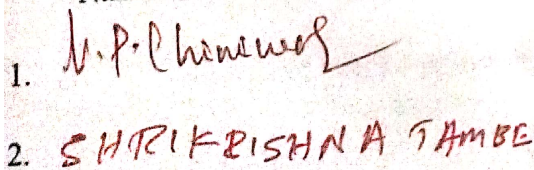 1. N.P. Chinewar
2. SHRIKRISHNA TAMBE